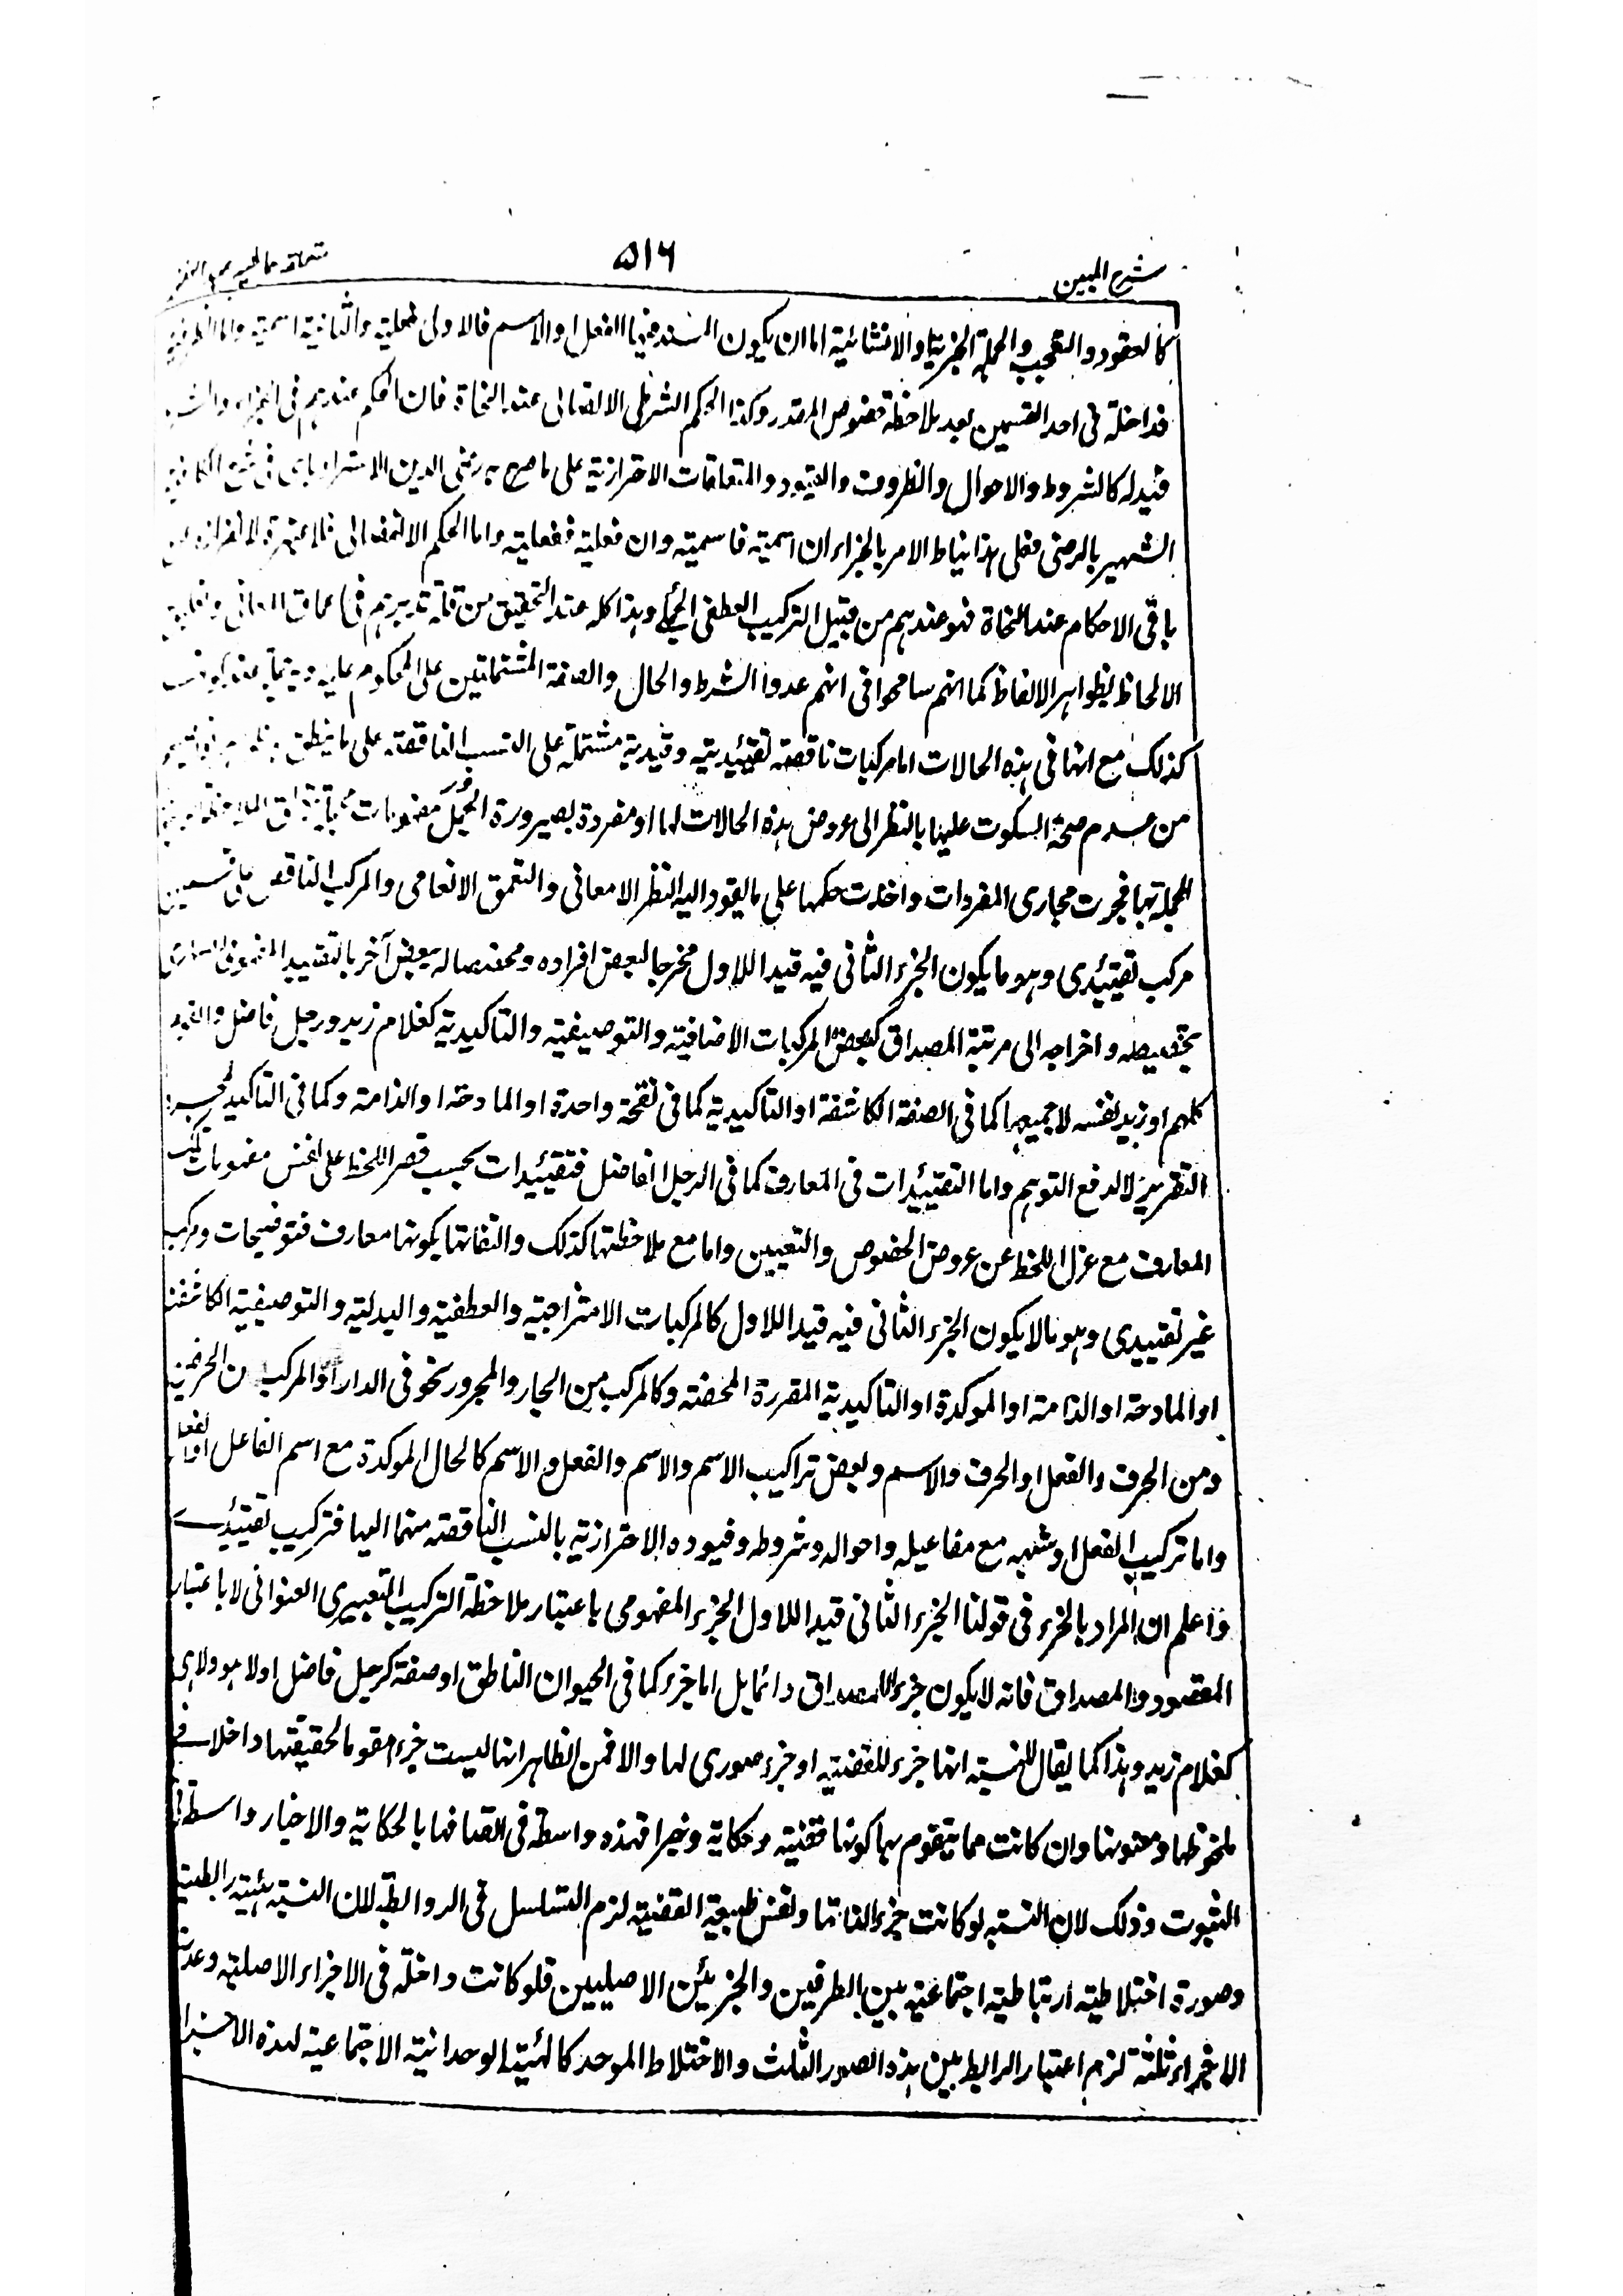 شرح المبین
۵۱۶
کالعقود والتعجب والجملة الخبریة او الانشائیة اما ان یکون المسند فیها الفعل او الاسم فالاولی فعلیة والثانیة اسمیة واما الظرفیة
فداخلة فی احد القسمین بعد ملاحظة خصوص المقدر وکذا الحکم الشرطی الاتصالی عند النحاة فان الحکم عندهم فی الجزاء والشرط
قید له کالشروط والاحوال والظروف والقیود والمتعلقات الاحترازیة علی ما صرح به رضی الدین الاسترابادی فی شرح الکافیة
الشهیر بالرضی فعلی هذا نیاط الامر بالجزاء ان اسمیة فاسمیة وان فعلیة ففعلیة واما الحکم الانفصالی فلا
باقی الاحکام عند النحاة فهو عندهم من قبیل الترکیب العطفی الجملی وهذا کله عند التحقیق من قلة تدبرهم فی اعماق المعانی
الالحاظ بظواهر الالفاظ کما انهم سامحوا فی انهم عدوا الشرط والحال والصفة المشتملتین علی المحکوم علیه وبه
کذلک مع انها فی هذه الحالات اما مرکبات ناقصة تقییدیة وقیدیة مشتملة علی النسب الناقصة علی ما ینطق به
من عدم صحة السکوت علیها بالنظر الی عروض هذه الحالات لها او مفردة بصیرورة الجمل مفهومات
الجملة بها فجرت مجاری المفردات واخذت حکمها علی ما یقود الیه النظر الامعانی والتعمق الانعامی والمرکب الناقص علی قسمین
مرکب تقییدی وهو ما یکون الجزء الثانی فیه قیدا للاول مخرجا لبعض افراده ومخصصا له ببعض آخر بالتقیید المفهومی
بتخصیصه واخراجه الی مرتبة المصداق کبعض المرکبات الاضافیة والتوصیفیة والتاکیدیة کغلام زید ورجل فاضل والقوم
کلهم او زید نفسه لا جمیعها کما فی الصفة الکاشفة او التاکیدیة کما فی نفخة واحدة او المادحة او الذامة وکما فی التاکید لمجرد
التقریر لا لدفع التوهم واما التقییدات فی المعارف کما فی الرجل الفاضل فتقییدات بحسب قصر اللحظ علی نفس مفهومات تلک
المعارف مع عزل اللحظ عن عروض الخصوص والتعیین واما مع ملاحظتها کذلک والتفاتها بکونها معارف فتوضیحات ومرکب
غیر تقییدی وهو ما لا یکون الجزء الثانی فیه قیدا للاول کالمرکبات الامتزاجیة والعطفیة والبدلیة والتوصیفیة الکاشفة
او المادحة او الذامة او الموکدة او التاکیدیة المقررة المحضة وکالمرکب من الجار والمجرور نحو فی الدار او المرکب من الحرفین
ومن الحرف والفعل او الحرف والاسم وبعض تراکیب الاسم والاسم والفعل والاسم کالحال الموکدة مع اسم الفاعل او الفعل
واما ترکیب الفعل او شبهه مع مفاعیله واحواله وشروطه وقیوده الاحترازیة بالنسب الناقصة منهما الیها فترکیب تقییدی
واعلم ان المراد بالجزء فی قولنا الجزء الثانی قیدا للاول الجزء المفهومی باعتبار ملاحظة الترکیب التعبیری العنوانی لا باعتبار
المقصود والمصداق فانه لا یکون جزء للمصداق دائما بل اما جزء کما فی الحیوان الناطق او صفة کرجل فاضل او لا هو ولا هی
کغلام زید وهذا کما یقال للنسبة انها جزء للقضیة او جزء صوری لها والا فمن الظاهر انها لیست جزء مقوما لحقیقتها داخلا فی
ملحوظها ومعنونها وان کانت مما یتقوم بها کونها قضیة وحکایة وخبرا فهذه واسطة فی اتصافها بالحکایة والاخبار واسطة فی
الثبوت وذلک لان النسبة لو کانت جزء لذاتها ولنفس طبیعة القضیة لزم التسلسل فی الروابط لان النسبة هیئة رابطیة
وصورة اختلاطیة ارتباطیة اجتماعیة بین الطرفین والجزئین الاصلیین فلو کانت داخلة فی الاجزاء الاصلیة وعدت
الاجزاء ثلثة لزم اعتبار الرابط بین هذه الصور الثلث والاختلاط الموحد کالهیئة الوحدانیة الاجتماعیة لهذه الاجزاء